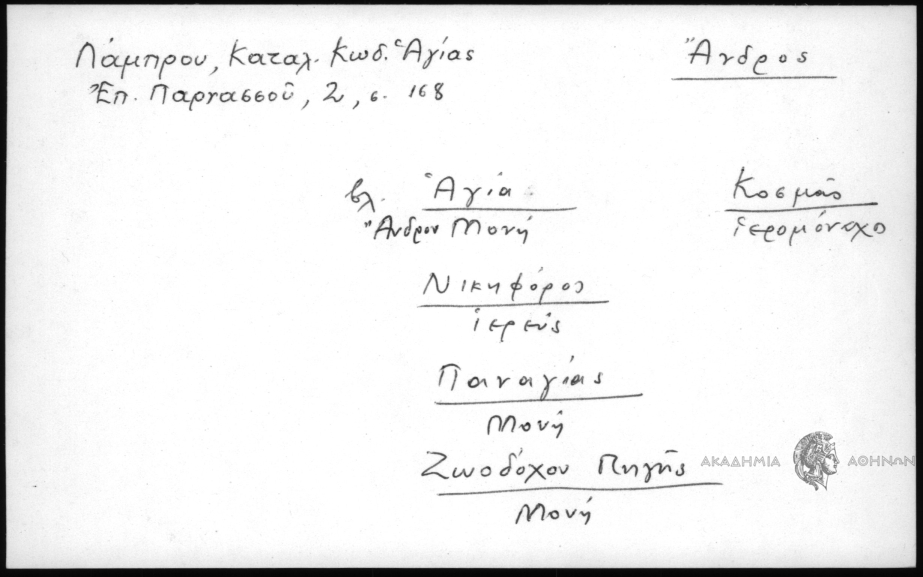 Λάμπρου, Καταλ. Κωδ. Ἁγίας
Ἐπ. Παρνασσοῦ, 2, σ. 168
Ἄνδρος
βλ. Ἁγία
Ἄνδρου Μονή
Κοσμᾶς
ἱερομόναχο
Νικηφόρος
ἱερεύς
Παναγίας
Μονή
Ζωοδόχου Πηγῆς
Μονή
ΑΚΑΔΗΜΙΑ ΑΘΗΝΩΝ